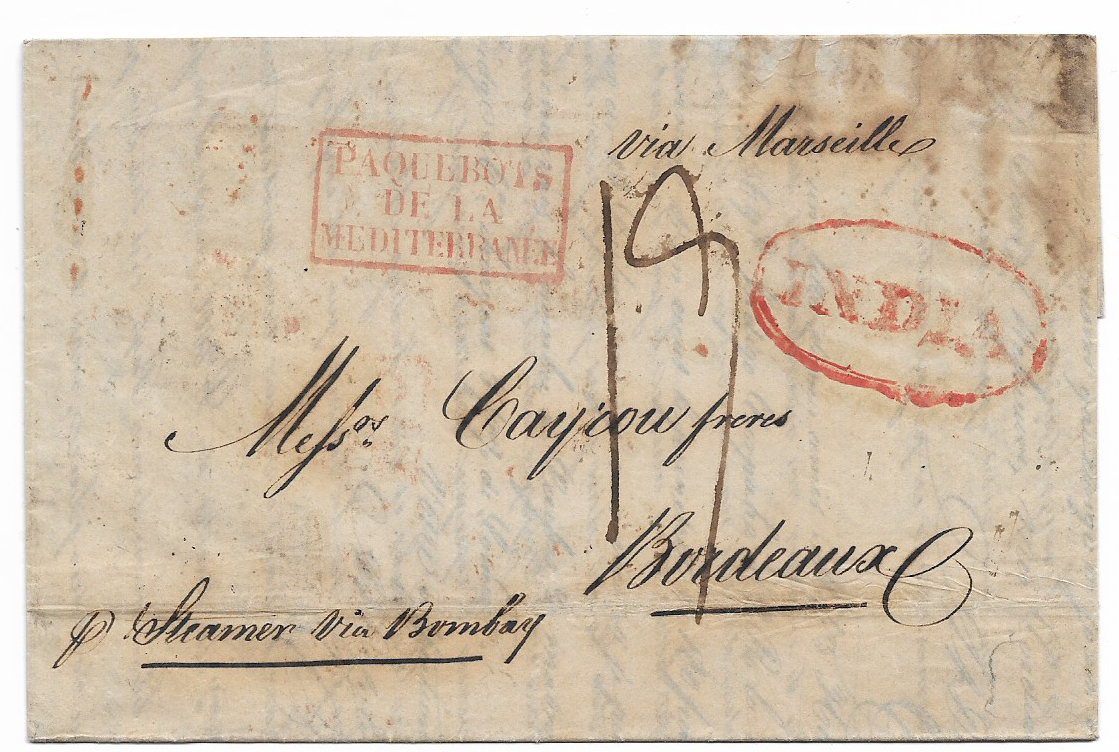 via Marseille
PAQUEBOTS
DE LA
MEDITERRANEE
19
INDIA
Messrs Cayrou freres
Bordeaux
p Steamer via Bombay